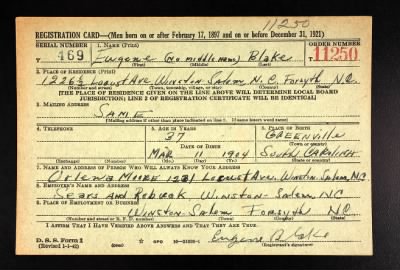 11250
REGISTRATION CARD—(Men born on or after February 17, 1897 and on or before December 31, 1921)
SERIAL NUMBER 1. NAME (Print) ORDER NUMBER
T 469 Eugene (no middle name) Blake T 11250
(First) (Middle) (Last)
2. PLACE OF RESIDENCE (Print)
1226½ Locust Ave Winston Salem, N.C. Forsyth N.C.
(Number and street) (Town, township, village, or city) (County) (State)
[THE PLACE OF RESIDENCE GIVEN ON THE LINE ABOVE WILL DETERMINE LOCAL BOARD
JURISDICTION; LINE 2 OF REGISTRATION CERTIFICATE WILL BE IDENTICAL]
3. MAILING ADDRESS
SAME
(Mailing address if other than place indicated on line 2. If same insert word same)
4. TELEPHONE 5. AGE IN YEARS 6. PLACE OF BIRTH
37 GREENVILLE
DATE OF BIRTH (Town or county)
MAR 11 1904 SOUTH CAROLINA
(Exchange) (Number) (Mo.) (Day) (Yr.) (State or country)
7. NAME AND ADDRESS OF PERSON WHO WILL ALWAYS KNOW YOUR ADDRESS
Moore 1231 Locust Ave. Winston Salem, N.C.
8. EMPLOYER'S NAME AND ADDRESS
Sears And Roebuck Winston-Salem, N.C.
9. PLACE OF EMPLOYMENT OR BUSINESS
Winston-Salem Forsyth N.C.
(Number and street or R. F. D. number) (Town) (County) (State)
I AFFIRM THAT I HAVE VERIFIED ABOVE ANSWERS AND THAT THEY ARE TRUE.
D. S. S. Form 1
(Revised 1-1-42) (over) GPO Eugene Blake
(Registrant's signature)